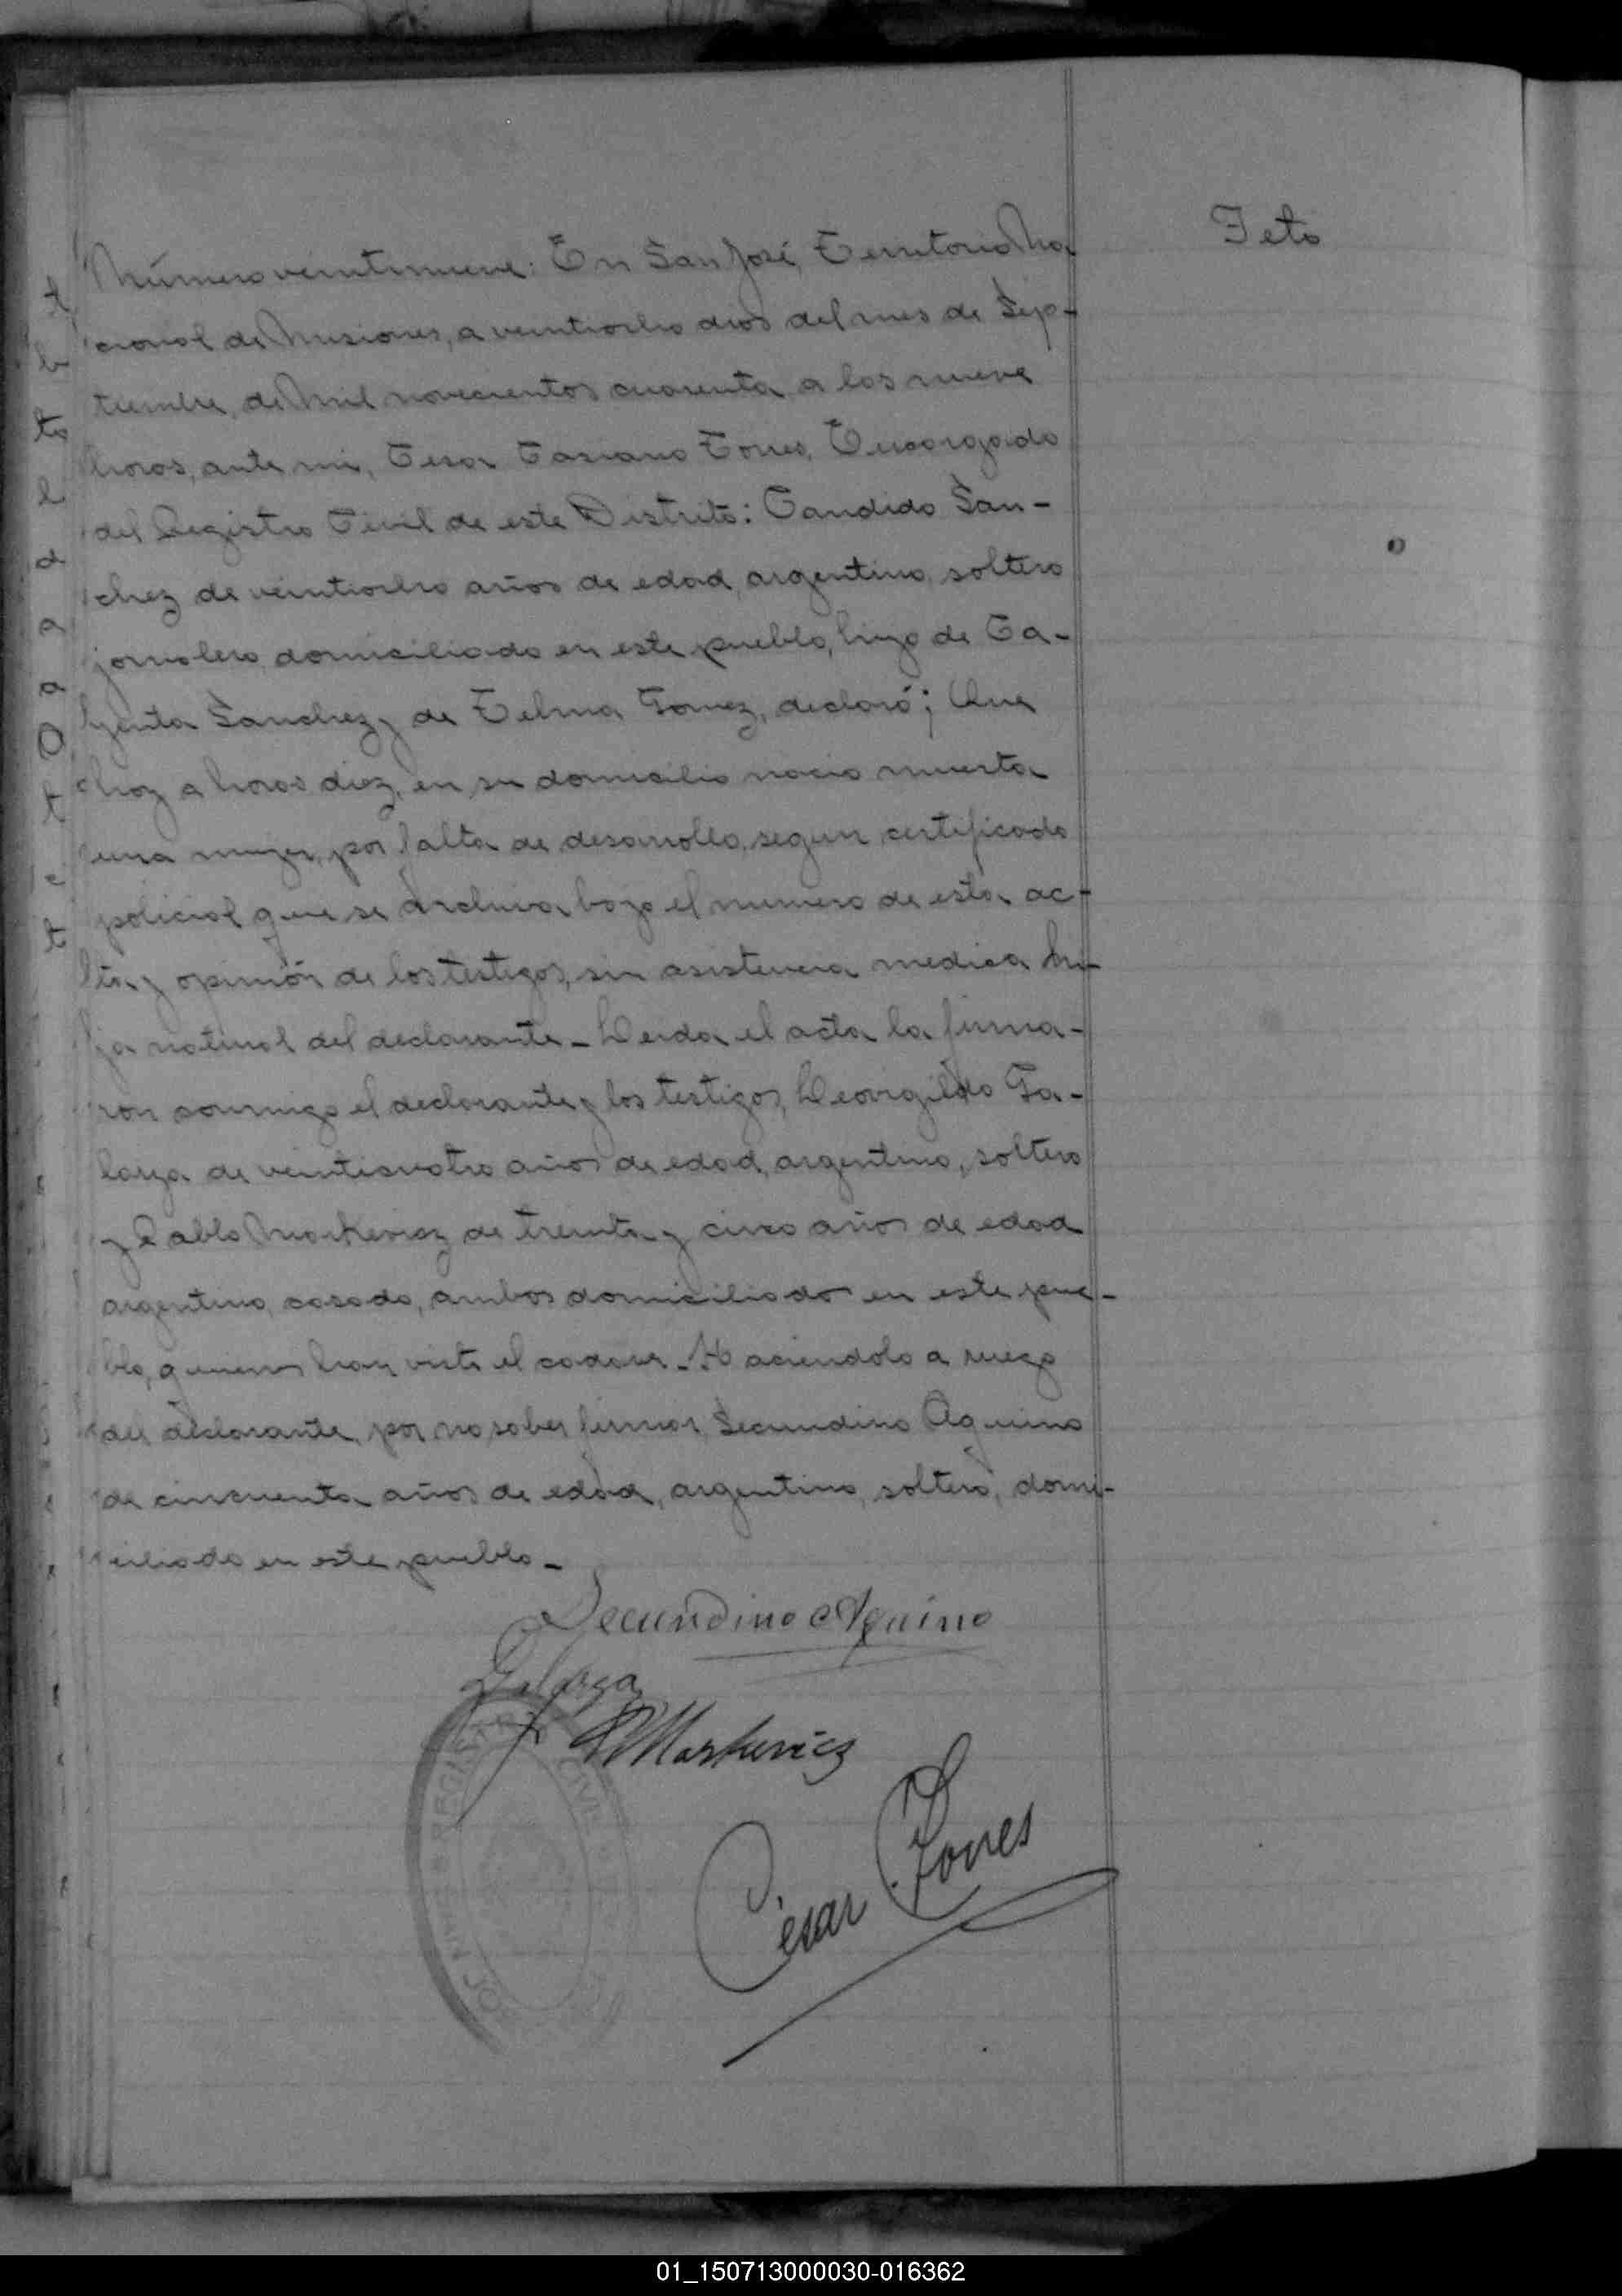 Feto
Número veintinueve: En San José, Territorio Na
cional de Misiones, a veintiocho dias del mes de Sep-
tiembre, de mil novecientos cuarenta, a las nueve
horas, ante mi, Cesar Casiano Torres, Encargado
del Registro Civil de este Distrito: Candido San-
chez de veintiocho años de edad, argentino, soltero
jornalero, domiciliado en este pueblo, hijo de Ca-
yenta Sanchez y de Telma Gomez, declaró; Que
hoy a horas diez, en su domicilio nacio muerta
una mujer, por falta de desarrollo, segun certificado
policial que se archiva bajo el numero de esta ac-
ta y opinión de los testigos, sin asistencia medica hi-
ja natural del declarante_ Leida el acta la firma-
ron conmigo el declarante y los testigos, Leovigildo Ga-
larza de veinticuatro años de edad, argentino, soltero
y Pablo Markevicz de treinta y cinco años de edad
argentino, casado, ambos domiciliados en este pue-
blo, quienes han visto el cadaver_ Haciendolo a ruego
del declarante, por no saber firmar, Secundino Aquino
de cincuenta años de edad, argentino, soltero, domi-
ciliado en este pueblo_
Secundino Aquino
Galarza
P Markevicz
Cesar C. Torres
REGISTRO CIVIL
SAN JOSE
01_150713000030-016362